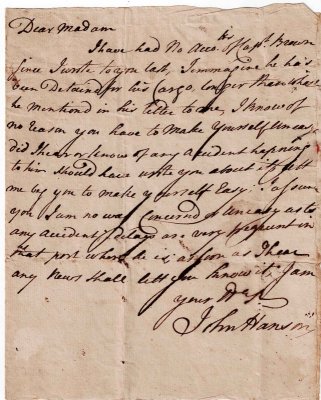 Dear Madam
I have had No Acco.ts of Capt. Brown
Since I wrote to you last, I immagine he has
been Detained for his Cargo, longer than what
he mentiond in his letter to me, I know of
no reason you have to make Yourself Uneasy
did I hear or know of any accident happening
to him Should have wrote you about it,
me beg you to make yourself Easy. I assure
you I am no way Concerned or Uneasy as to
any accident, delays are very frequent in
that port where he is, as soon as I hear
any News shall lett you know it, I am
your
John Hanson